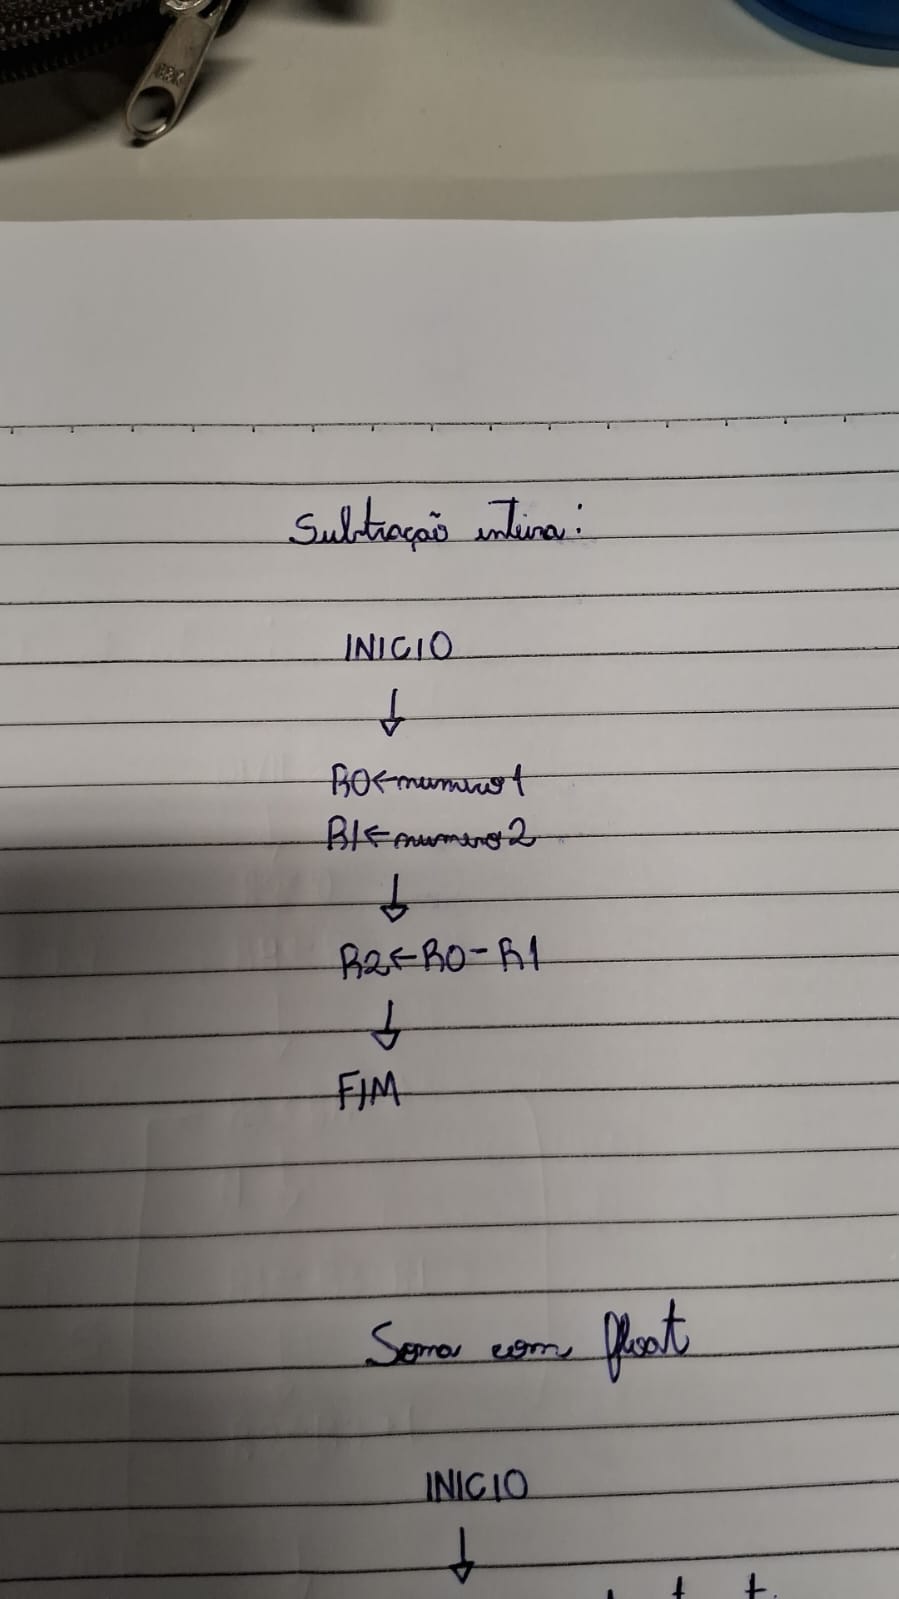 Subtração inteira:
INICIO
↓
R0←numero1
R1←numero2
↓
R2←R0-R1
↓
FIM
Soma com float
INICIO
↓